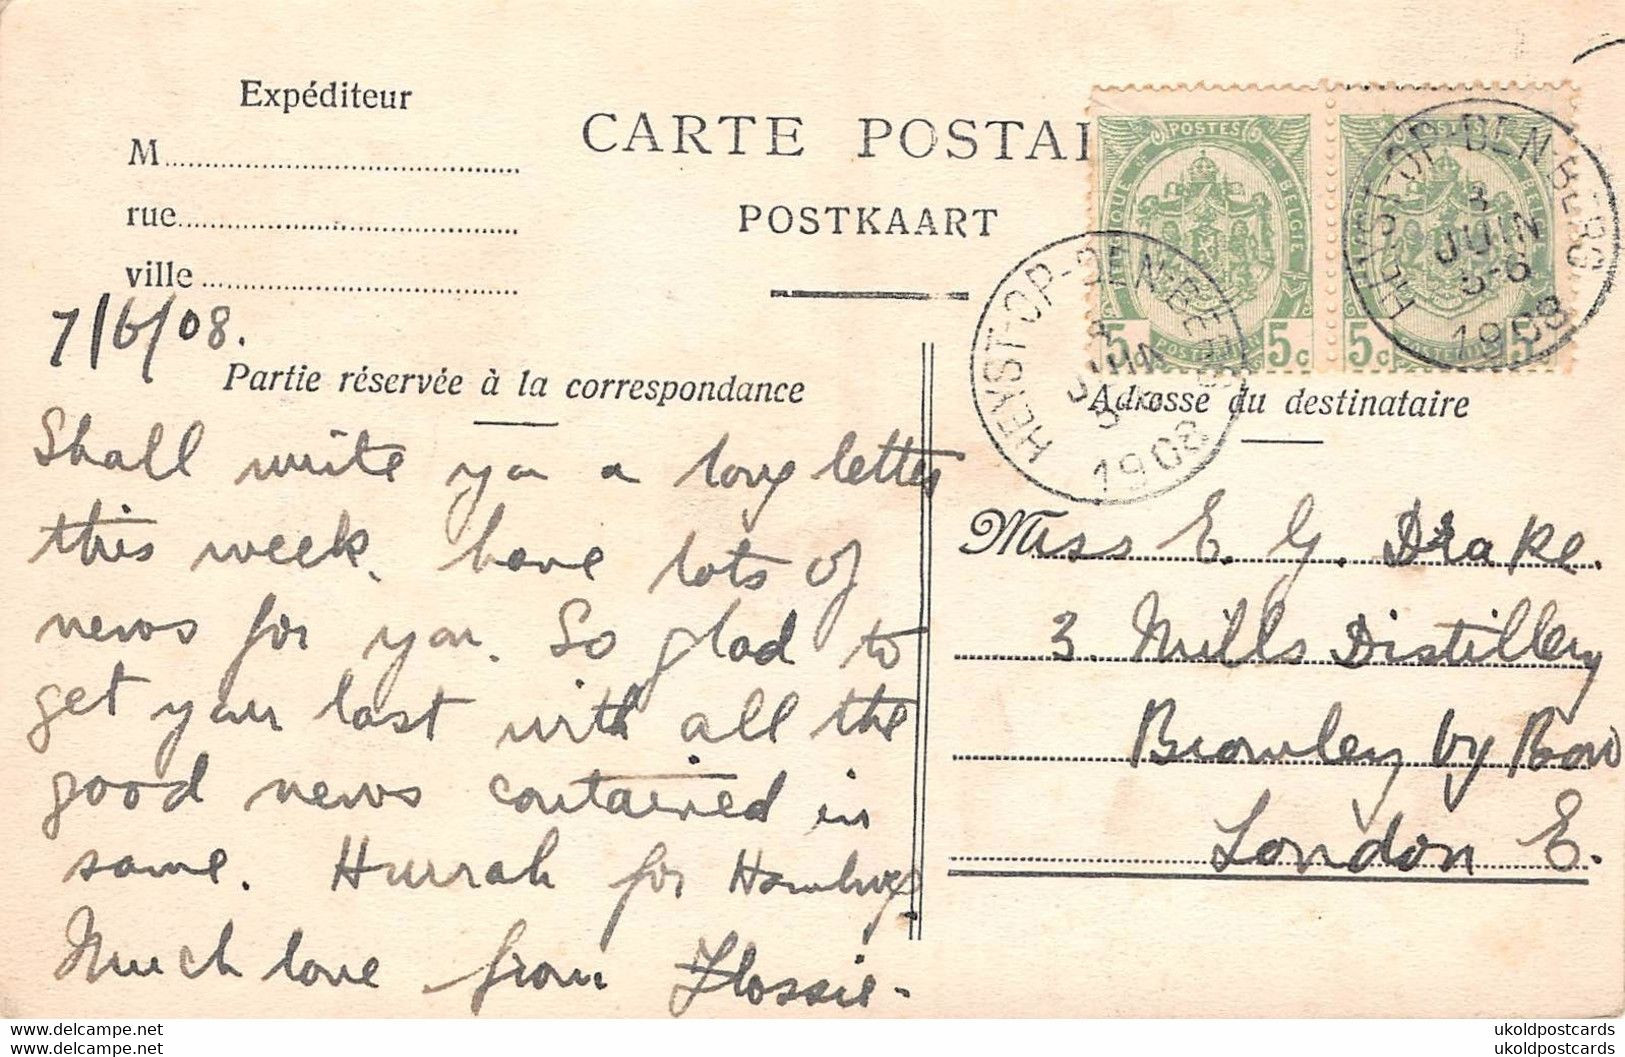 Expéditeur
M
rue
ville
CARTE POSTAL
POSTKAART
POSTES
BELGIQUE BELGIE
5c 5c
POSTERIJEN
5c 5
HEYST-OP-DEN-BERG
JUIN
1908
HEYST-OP-DEN-BERG
3
JUIN
5-6
1908
7/6/08.
Partie réservée à la correspondance
Adresse du destinataire
Shall write you a long letter
this week. have lots of
news for you. So glad to
get your last with all the
good news contained in
same. Hurrah for
Much love from Flossie.
Miss E. G. Drake.
3. Mills Distillery
Bromley by Bow
London E.
www.delcampe.net ukoldpostcards
www.delcampe.net ukoldpostcards